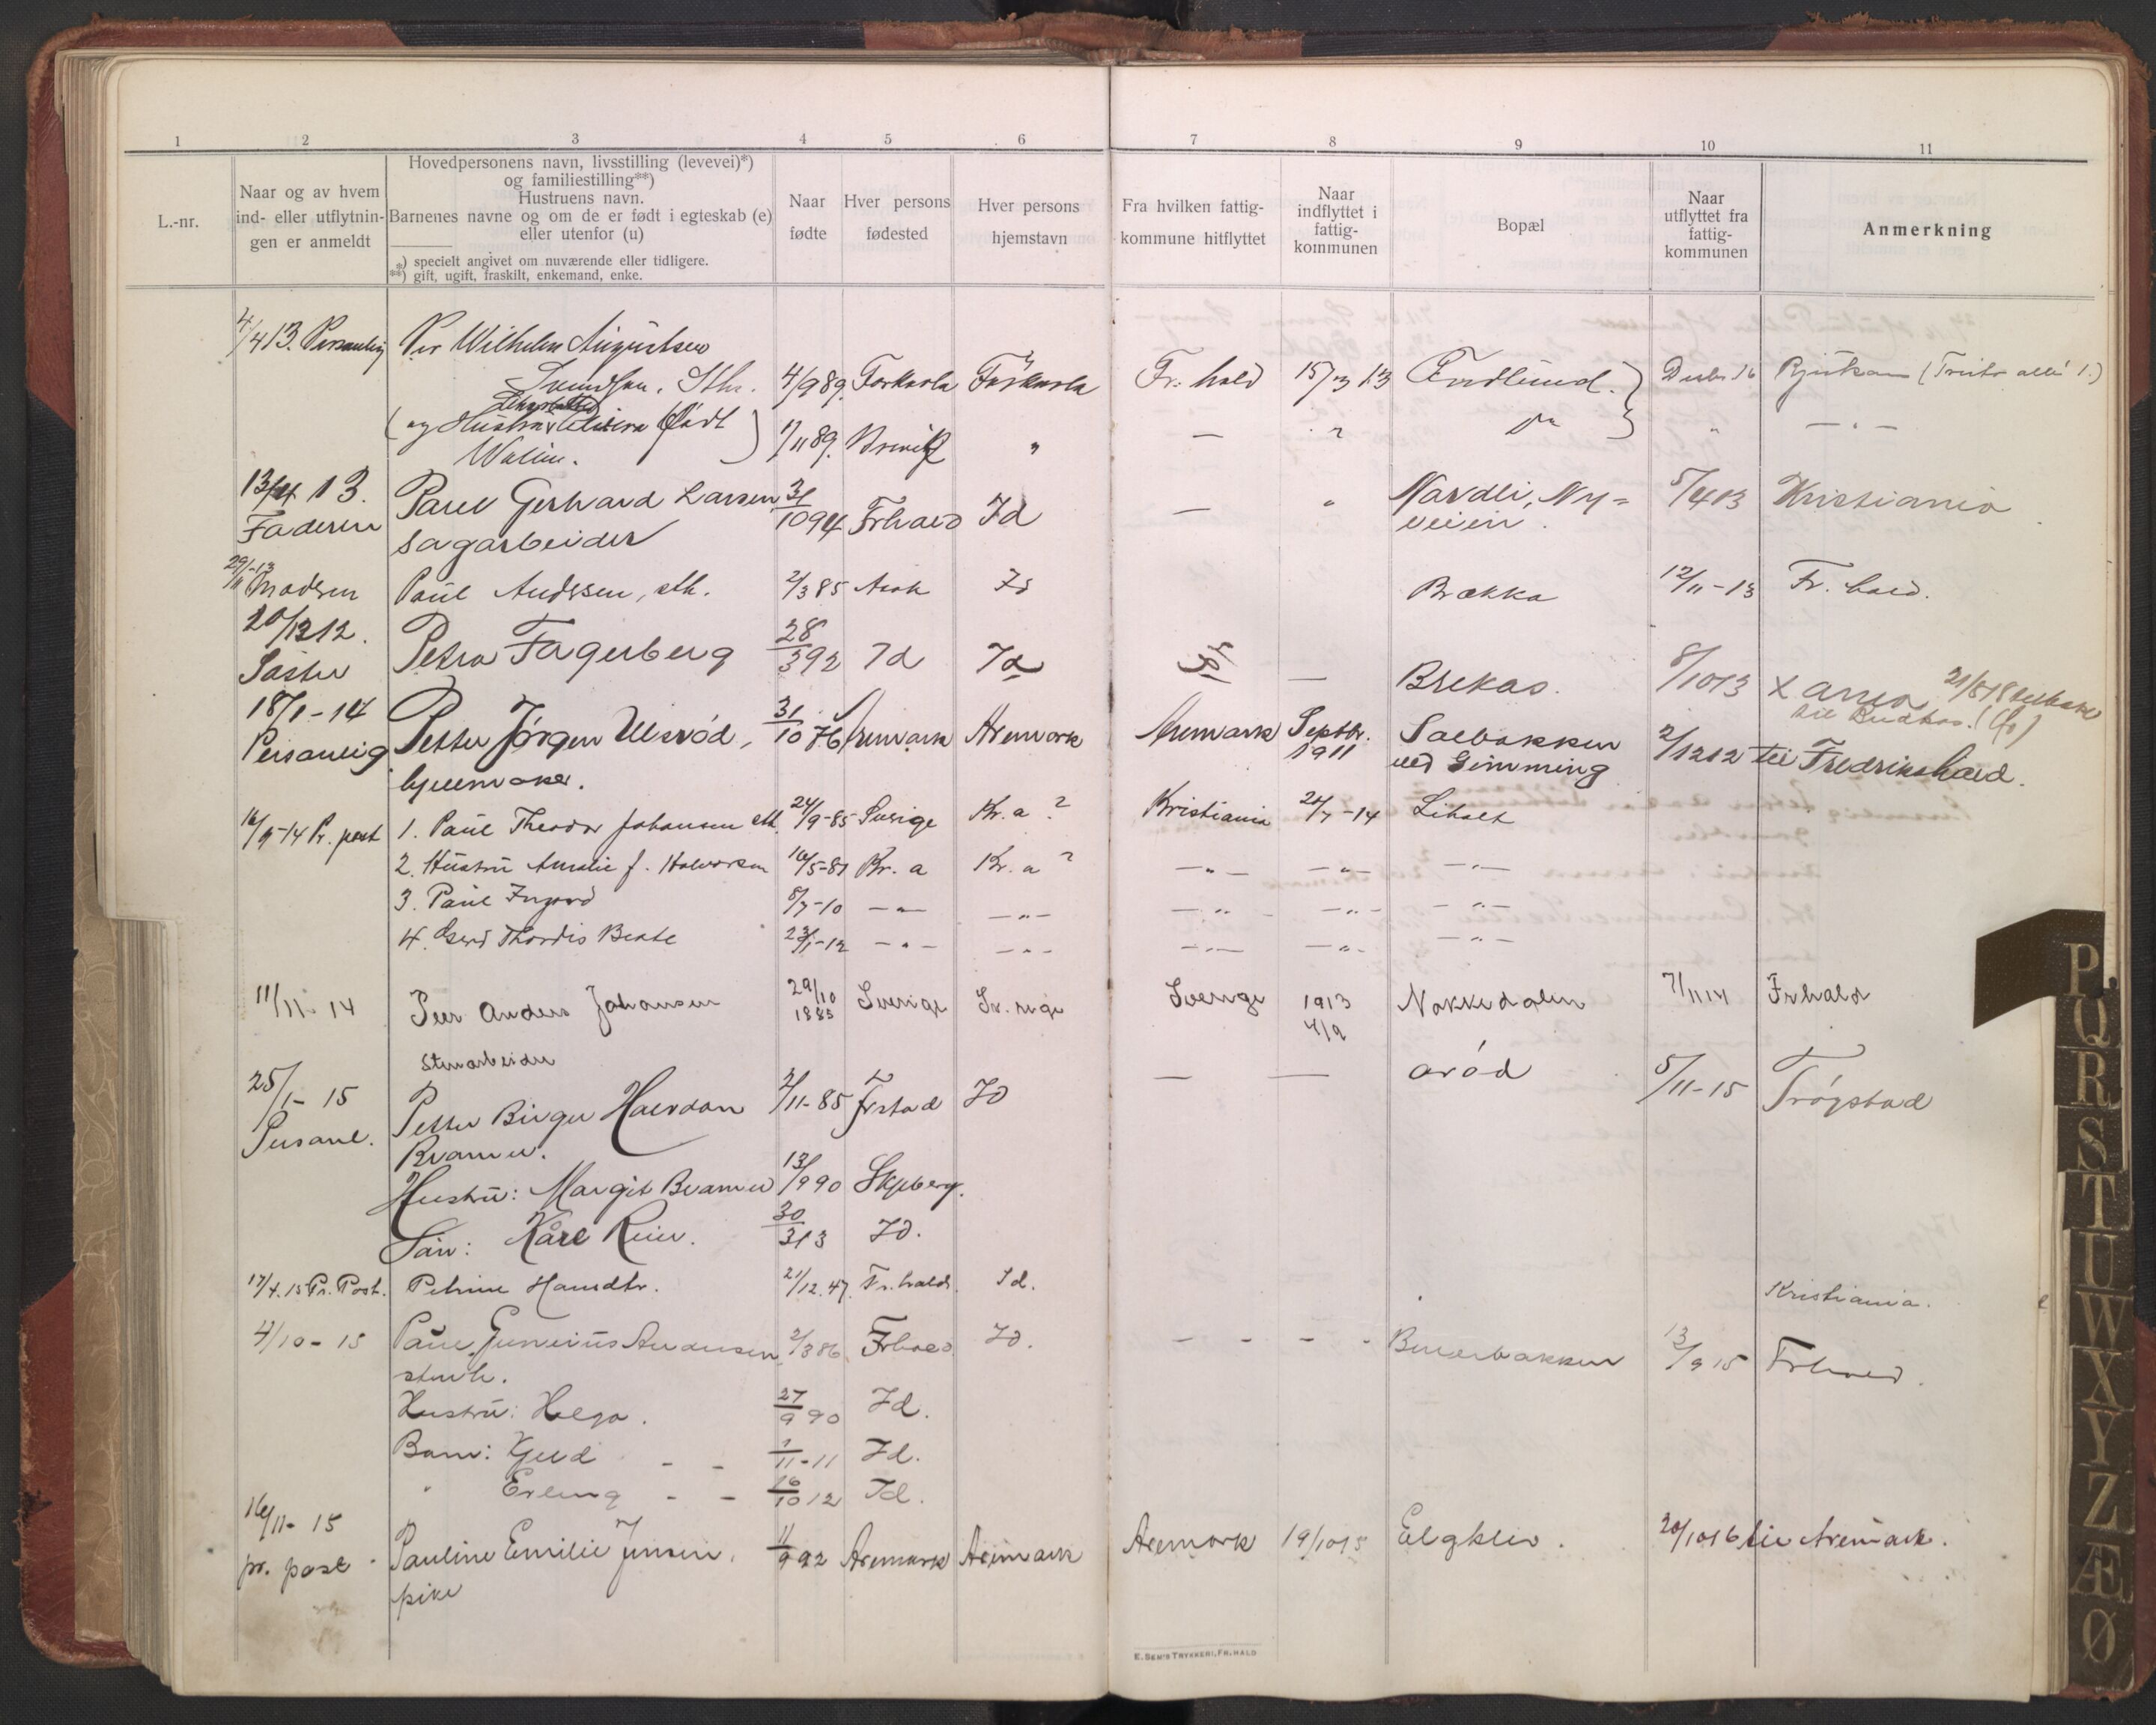 1 2 3 4 5 6 7 8 9 10 11
L.-nr.
Naar og av hvem
ind- eller utflytnin-
gen er anmeldt
Hovedpersonens navn, livsstilling (levevei)*)
og familiestilling**)
Hustruens navn.
Barnenes navne og om de er født i egteskab (e)
eller utenfor (u)
*) specielt angivet om nuværende eller tidligere.
**) gift, ugift, fraskilt, enkemand, enke.
Naar
fødte
Hver persons
fødested
Hver persons
hjemstavn
Fra hvilken fattig-
kommune hitflyttet
Naar
indflyttet i
fattig-
kommunen
Bopæl
Naar
utflyttet fra
fattig-
kommunen
Anmerkning
4/4 13. Personlig Per Wilhelm Augustsen
Svendsen, Sth. 4/9 89. Torkarla Torkarla Fr. hald 15/3 13 Desbr 16 Rjukan
(og Hustru født 1/11 89. " — " "
Walin.
13/4 13. Paul Gerhard Larsen 3/10 94 Frhald Id — " Nordli, Ny= 5/4 13 Kristiania
Faderen sagarbeider veien.
29/11-13 Modern Paul Andrsen, sth. 2/3 85 Id Brekka 12/11-13 Fr. hald.
20/12 12.
Søster Petra Fagerberg 28/3 92 Id Id — Brekas. 8/10 13
18/1-14
Personlig Petter Jørgen Ulsrød, 31/10 76 Aremark Aremark Aremark Septbr. 1911 Solbakken
ved Gimming 2/12 12 til Fredrikshald.
hjulmaker.
16/9-14 Pr. post 1. Paul Theodor Johansen sth. 24/9-85 Sverige Kr.a ? Kristiania 20/7-14 Liholt
2. Hustru Amalie f. Halvorsen 16/5-81 Kr. a Kr. a ? —"— —"— —"—
3. Paul Ingvard 8/7-10 —"— —"— —"— —"— —"—
4. Gerd Thordis Beate 23/1-12 —"— —"— —"— —"— —"—
11/11-14 Peer Anders Johansen 29/10 1885 Sverige Sverige Sverige 1913 4/9 Nokkedalen 7/11 14 Frhald
Stenarbeider
25/1-15
Personl. Petter Birger Halvdan 2/11-85 Frstad Id — — Arød 5/11-15 Trøgstad
Bramer.
Hustru: Margit Bramer 13/9 90 Skjeberg.
Sön: Kåre Reier. 30/3 13 Id.
17/4. 15 Pr. Post. Petrine Hansdtr. 21/12. 47. Fr.hald. Id. Kristiania.
4/10-15 Paul Gunerius Andersen 2/3 86 Frhald Id. - - - - Bererbakken 13/9 15 Frhald.
stenh.
Hustru: Helga. 27/9 90 Id.
Barn: Kjeld - - 1/11-11 Id.
" Erling - - 16/10 12 Id.
16/11-15
pr. post Pauline Emilie Jensen, 11/9 92 Aremark Aremark Aremark 19/10 15 Elgklev. 20/10 16 til Aremark.
pike
E. Sem's Trykkeri, Fr.hald
P.
Q
R
S
T
U
W
X
Y
Z
Æ
Ø